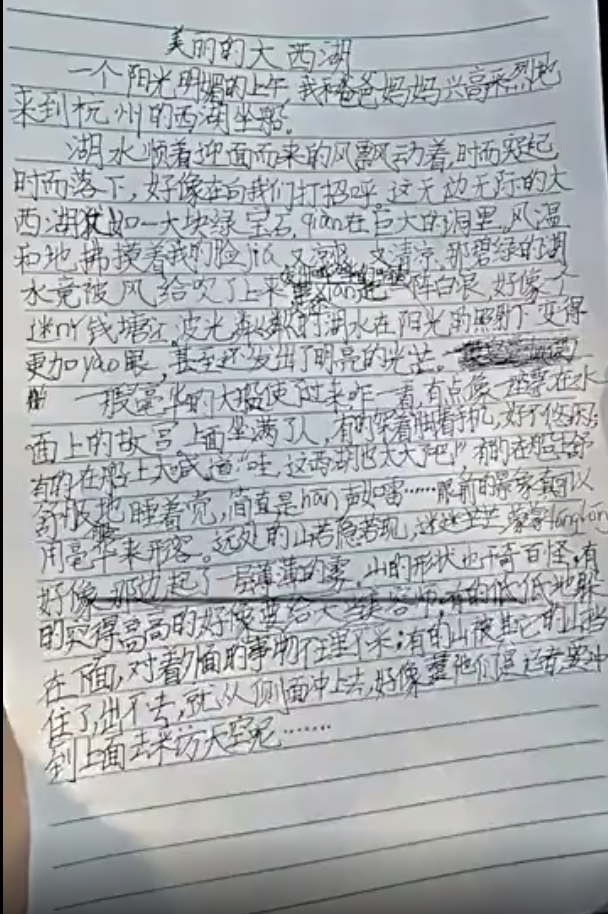 美丽的大西湖
一个阳光明媚的上午,我和爸爸妈妈兴高采烈地
来到杭州的西湖坐船。
湖水顺着迎面而来的风飘动着,时而突起
时而落下,好像在向我们打招呼。这无边无际的大
西湖犹如一大块绿宝石,qian在巨大的洞里,风温
和地拂摸着我的脸jia,又凉爽,又清凉,那碧绿的湖
水竟被风给吹了上来,xian起一阵白浪,好像一个
迷ni钱塘江。波光粼粼的湖水在阳光的照射下变得
更加yao眼,甚至还发出了明亮的光芒。
一艘豪华的大船使了过来,乍一看,有点像一座
面上的故宫。上面坐满了人,有的手机,好不悠闲;
有的在船上大喊道“哇,这西湖也太大了吧!”有的在船
地睡着觉,简直是han声如雷……眼前的景象真可以
用来形容。远处的山若隐若现,迷迷茫茫
好像那边起了一层薄薄的雾,山的形状也千奇百怪,有
的突得高高的好像要给天当有的低低地躲
在下面,对着外面的事物往里;有的山被其它的山挡
住了,出不去,就从侧面冲上去,好像
到上面去采访天空呢……